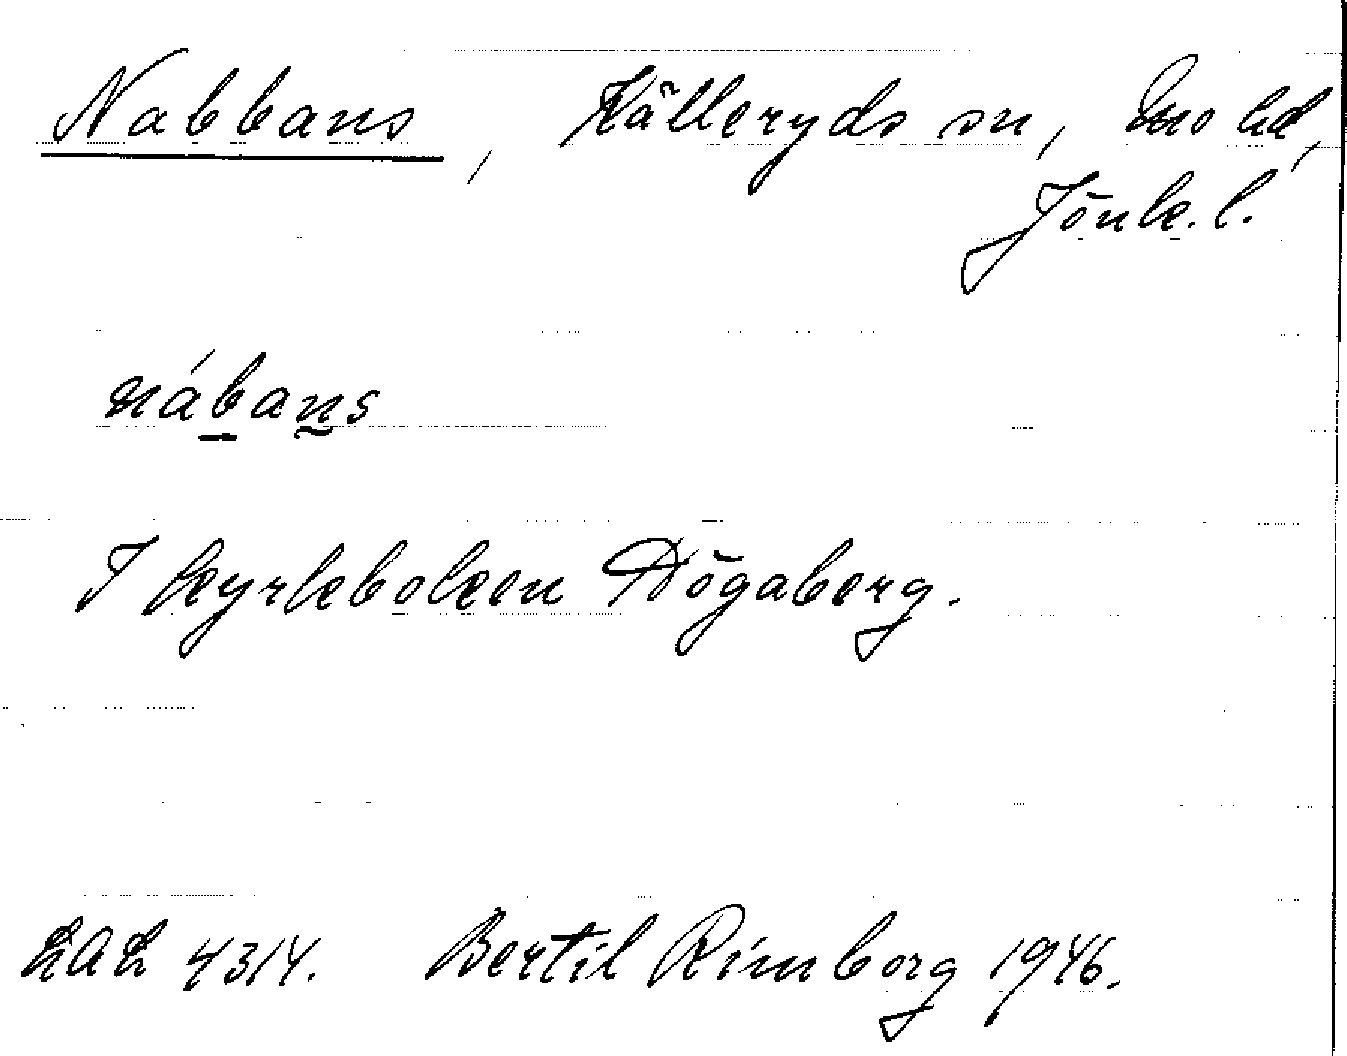 Nabbans, Källeryds sn, Mo hd,
Jönk. l.
nábans
I kyrkboken Dögaberg.
LAL 4314. Bertil Rimborg 1946.